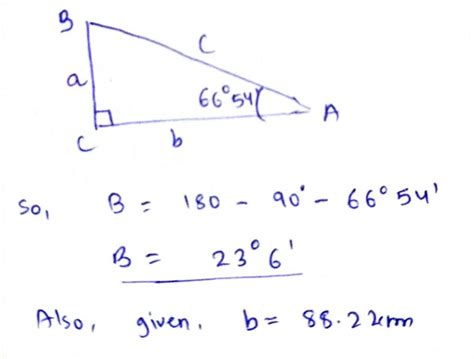 B
c
a
66°54'
A
C
b
So, B = 180 - 90° - 66°54'
B = 23°6'
Also, given, b = 88.22km